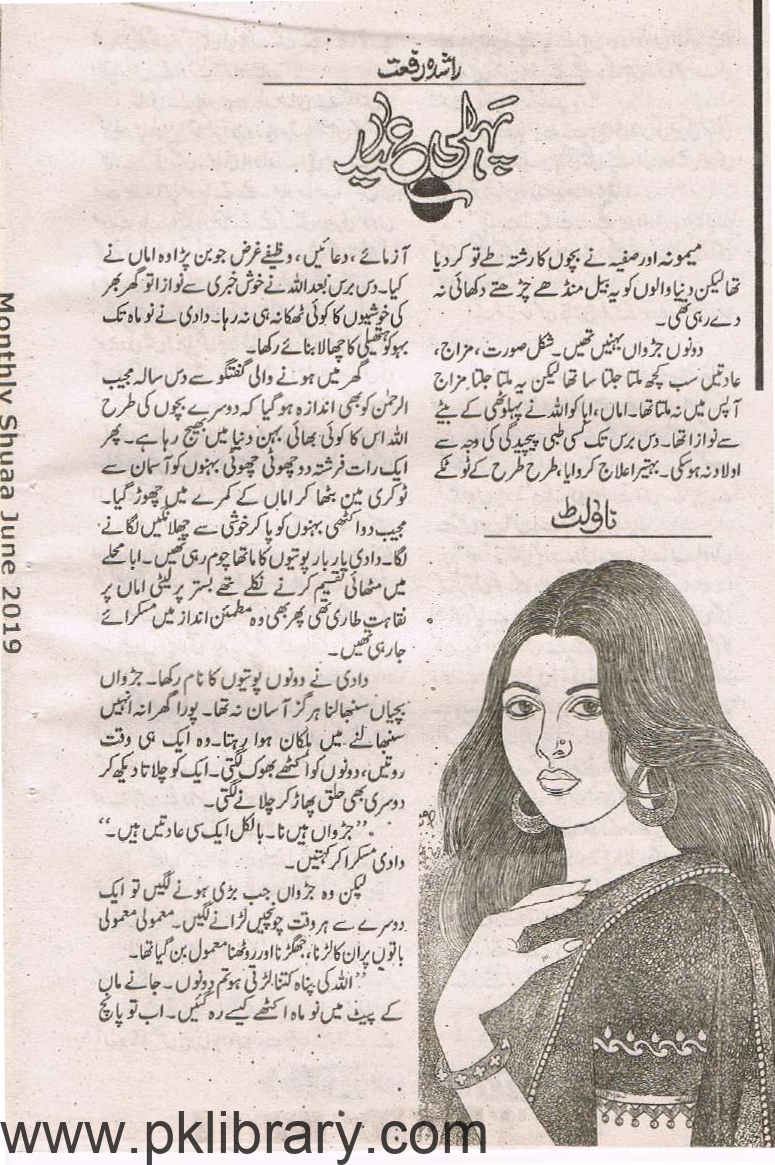 راشدہ رفعت
پہلی عید
میمونہ اور صفیہ نے بچوں کا رشتہ طے تو کر دیا
تھا لیکن دنیا والوں کو یہ بیل منڈھے چڑھتے دکھائی نہ
دے رہی تھی۔
دونوں جڑواں بہنیں تھیں۔ شکل صورت، مزاج،
عادتیں سب کچھ ملتا جلتا سا تھا لیکن یہ ملتا جلتا مزاج
آپس میں نہ ملتا تھا۔ اماں، ابا کو اللہ نے پہلوٹھی کے بیٹے
سے نوازا تھا۔ دس برس تک کسی طبی پیچیدگی کی وجہ سے
اولاد نہ ہو سکی۔ بہتیرا علاج کروایا، طرح طرح کے ٹوٹکے
ناولٹ
آزمائے، دعائیں، وظیفے غرض جو بن پڑا وہ اماں نے
کیا۔ دس برس بعد اللہ نے خوش خبری سے نوازا تو گھر بھر
کی خوشیوں کا کوئی ٹھکانہ ہی نہ رہا۔ دادی نے نو ماہ تک
بہو کو ہتھیلی کا چھالا بنائے رکھا۔
گھر میں ہونے والی گفتگو سے دس سالہ مجیب
الرحمٰن کو بھی اندازہ ہو گیا کہ دوسرے بچوں کی طرح
اللہ اس کا کوئی بھائی بہن دنیا میں بھیج رہا ہے۔ پھر
ایک رات فرشتہ دو چھوٹی چھوٹی بہنوں کو آسمان سے
ٹوکری میں بٹھا کر اماں کے کمرے میں چھوڑ گیا۔
مجیب دو اکٹھی بہنوں کو پا کر خوشی سے چھلانگیں لگانے
لگا۔ دادی بار بار پوتیوں کا ماتھا چوم رہی تھیں۔ ابا محلے
میں مٹھائی تقسیم کرنے نکلے تھے بستر پر لیٹی اماں پر
نقاہت طاری تھی پھر بھی وہ مطمئن انداز میں مسکرائے
جا رہی تھیں۔
دادی نے دونوں پوتیوں کا نام رکھا۔ جڑواں
بچیاں سنبھالنا ہرگز آسان نہ تھا۔ پورا گھرانہ انہیں
سنبھالنے میں ہلکان ہوا رہتا۔ وہ ایک ہی وقت
روتیں، دونوں کو اکٹھے بھوک لگتی۔ ایک کو چلاتا دیکھ کر
دوسری بھی حلق پھاڑ کر چلانے لگتی۔
”جڑواں ہیں نا۔ بالکل ایک سی عادتیں ہیں۔“
دادی مسکرا کر کہتیں۔
لیکن وہ جڑواں جب بڑی ہونے لگیں تو ایک
دوسرے سے ہر وقت چونچیں لڑانے لگیں۔ معمولی معمولی
باتوں پر ان کا لڑنا، جھگڑنا اور روٹھنا معمول بن گیا تھا۔
”اللہ کی پناہ کتنا لڑتی ہو تم دونوں۔ جانے ماں
کے پیٹ میں نو ماہ اکٹھے کیسے رہ گئیں۔ اب تو پانچ
Monthly Shuaa June 2019
www.pklibrary.com